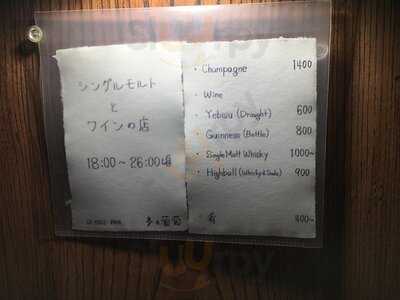 シングルモルト
と
ワインの店
18:00～26:00頃
・Champagne 1400
・Wine
・Yebisu (Draught) 600
・Guinness (Bottle) 800
・Single Malt Whisky 1000～
・Highball (Whisky & Soda) 900
・肴